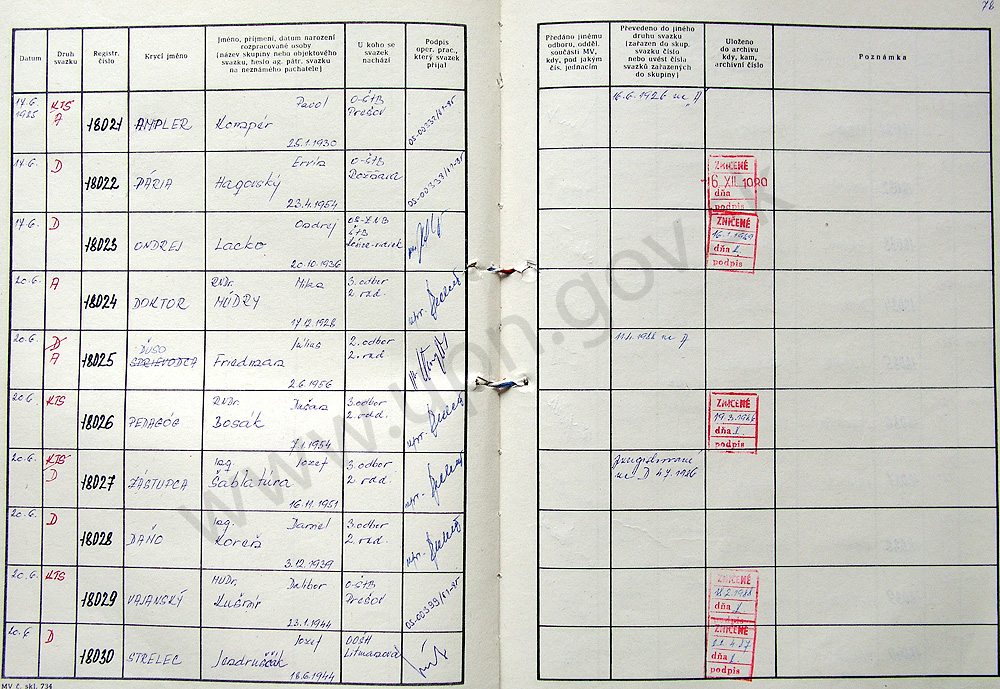 76
Datum
Druh svazku
Registr. číslo
Krycí jméno
Jméno, příjmení, datum narození
rozpracované osoby
[název skupiny nebo objektového
svazku, heslo ag. pátr. svazku
na neznámého pachatele]
U koho se
svazek
nachází
Podpis
oper. prac.,
který svazek
přijal
Předáno jinému
odboru, odděl.
součásti MV,
kdy, pod jakým
čís. jednacím
Převedeno do jiného
druhu svazku
[zařazen do skup.
svazku číslo
nebo uvést čísla
svazků zařazených
do skupiny]
Uloženo
do archivu
kdy, kam,
archivní číslo
Poznámka
17.6. 1985 KTS A 18021 AMPLER Pavol Konspér 25.1.1930 O-ŠtB Prešov OS-00332/01-85
16.6.1986 na A
17.6. D 18022 PÁRIA Ervín Hagovský 23.4.1954 O-ŠtB Rožňava OS-00333/01-85
ZNIČENÉ
dňa
podpis
17.6. D 18023 ONDREJ Ondrej Lacko 20.10.1936 OS-ZNB ŠtB
ZNIČENÉ
16.1.1989
dňa
podpis
20.6. A 18024 DOKTOR RNDr. MÚDRY 17.12.1928 3.odbor 2.odd.
20.6. D A 18025 DUŠO SPRIEVODCA Július Friedman 2.6.1956 2.odbor 2.odd
na A
20.6. KTS 18026 PEDAGÓG RNDr. Dušan Bosák 7.1.1954 3.odbor 2.odd.
ZNIČENÉ
19.3.1986
dňa
podpis
20.6. KTS D 18027 ZÁSTUPCA Ing. Jozef Šablatúra 16.11.1951 3.odbor 2.odd.
na D 4.7.1986
20.6. D 18028 DAŇO Ing. Daniel Koreň 3.12.1939 3.odbor 2.odd.
20.6. KTS 18029 VAJANSKÝ MUDr. Dalibor Kušnír 23.1.1944 O-ŠtB Prešov OS-00399/01-85
ZNIČENÉ
dňa
podpis
20.6 D 18030 STRELEC Jozef Jendruščák 18.6.1944 OOSH Litmanová
ZNIČENÉ
dňa
podpis
MV č. skl. 734
www.upn.gov.sk